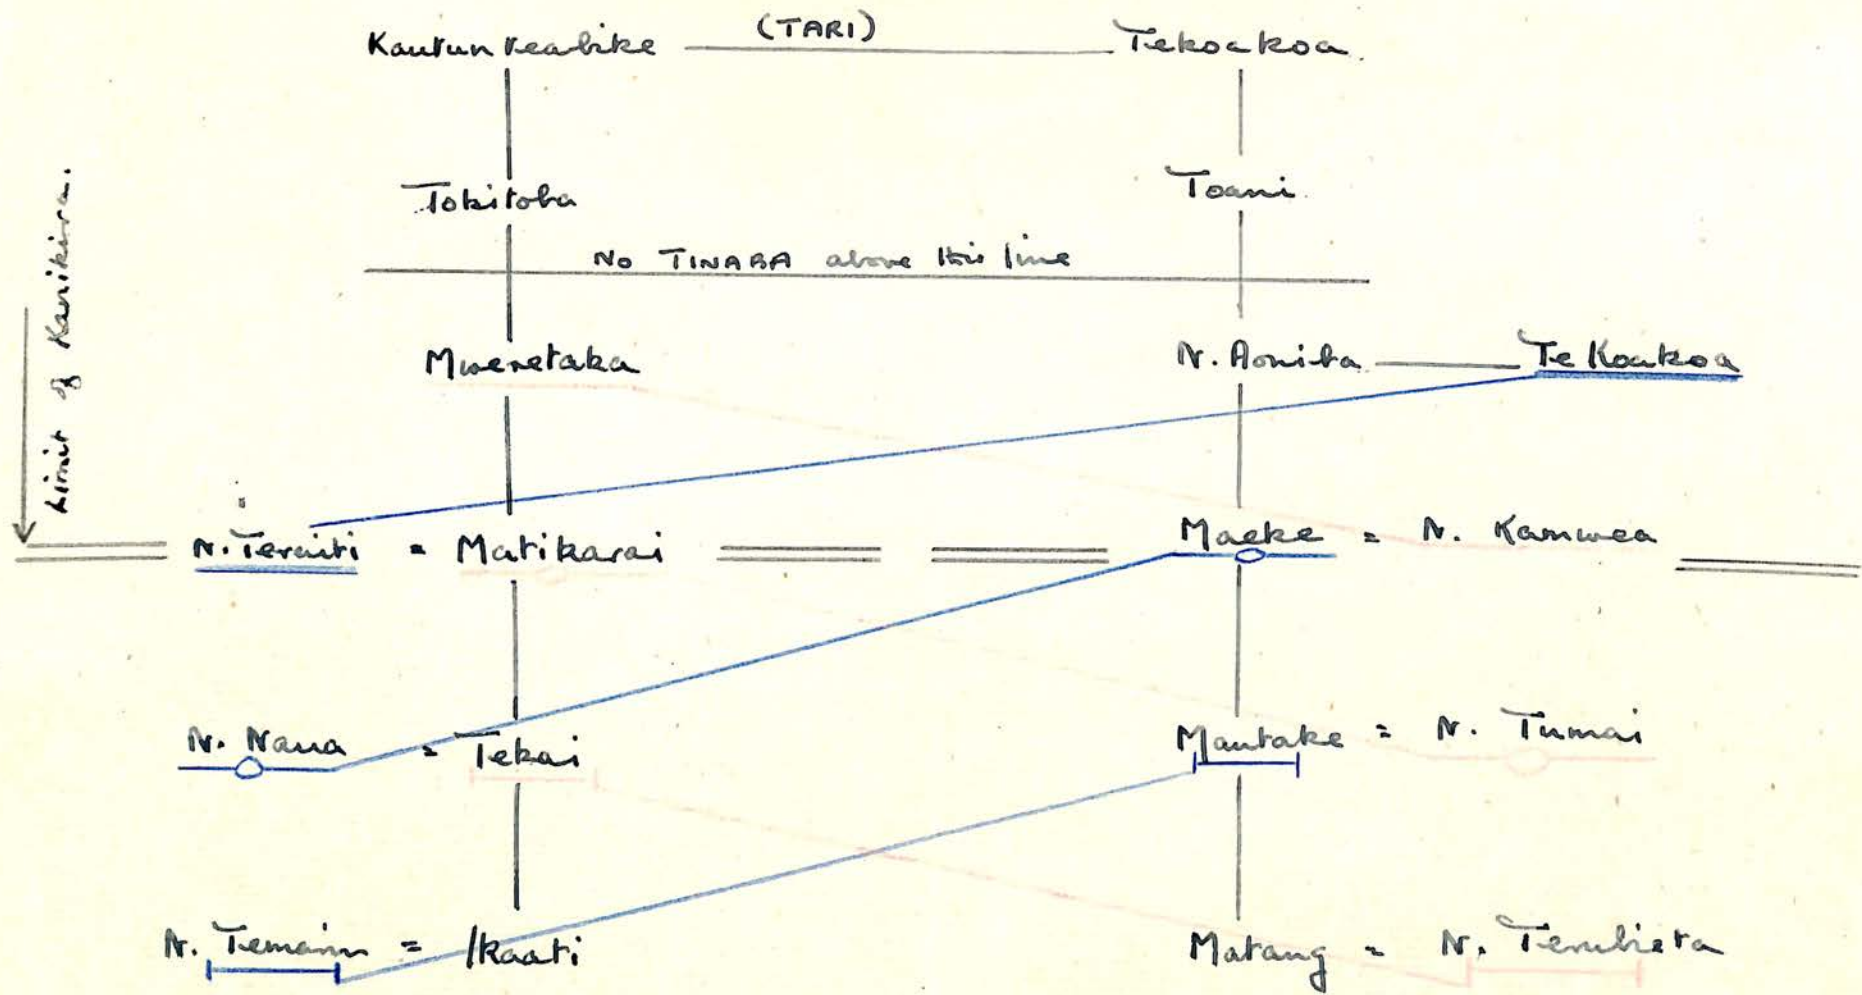 (TARI)
Kautunteabike Tekoakoa
Tobitoba Toani
No TINABA above this line
Limit of Kanikira.
Mweretaka N. Aoniba Te Koakoa
N. Teraiti = Matikarai Maeke = N. Kamwea
N. Nana = Tekai Mautake = N. Tumai
N. = Ikaati Matang = N. Tenubieta